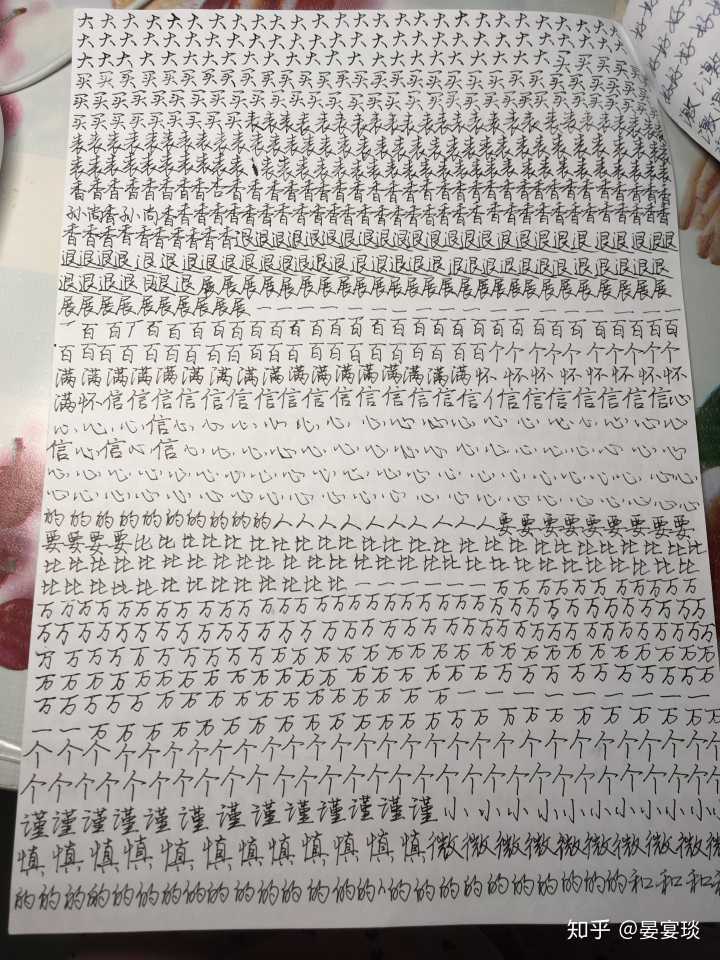 大大大大大大大大大大大大大大大大大大大大大大大大大大大
大大大大大大大大大大大大大大大大大大大大大大大大大大大
大大大大大大大大大大大大大大大大大大大大大大大买买买买
买买买买买买买买买买买买买买买买买买买买买买买买买买买
买买买买买买买买买买买买买买买买买买买买买买买买买买买
买买买买买买买买买表表表表表表表表表表表表表表表表表表表表表表
表表表表表表表表表表表表表表表表表表表表表表表表表表表表表表
表表表表表表表表表表表表表表表表表表表表表表表表表表表表表
香香香香香香香香香香香香香香香香香香香香香香香香香香香香香香
孙尚香孙尚香香香香香香香香香香香香香香香香香香香香香香香香香
香香香香香香香香香退退退退退退退退退退退退退退退退退退退退退退退
退退退退退退退退退退退退退退退退退退退退退退退退退退退退退
退退退退退退退展展展展展展展展展展展展展展展展展展展展展展展
展展展展展展展展展一一一一一一一一一一一一一一一一一一一一
一百百百百百百百百百百百百百百百百百百百百百百百百百百百
百百百百百百百百百百百百百百百百百百百百个个个个个个个个个
满满满满满满满满满满满满满满满满满怀怀怀怀怀怀怀怀
满怀信信信信信信信信信信信信信信信信信信信信信信心
心心心心信心心心心心心心心心心心心心心心心心心心
信心信心信心心心心心心心心心心心心心心心心心心心
心心心心心心心心心心心心心心心心心心心心心心心心心
心心心心心心心心心心心心心心心心心心心心心心心心心
的的的的的的的的的的人人人人人人人人人人要要要要要要要要要
要要要要比比比比比比比比比比比比比比比比比比比比比比比比
比比比比比比比比比比比比比比比比比比比比比比比比比比比
比比比比比比比比比比比比比一一一一一一万万万万万万万万万
万万万万万万万万万万万万万万万万万万万万万万万万万万万万万万万
万万万万万万万万万万万万万万万万万万万万万万万万万万万万万万
万万万万万万万万万万万万万万万万万万万万万万万万万万
万万万万万万万万万万万万万万万万万万万万万万万万万万万
万万万万万万万万万万万万万万万万一一一一一一一一一
一一万万万万万万万万万万万万万万万万万万万万万万万
个个个个个个个个个个个个个个个个个个个个个个个个个个
个个个个个个个个个个个个个个个个个个个个个个个个个个
谨谨谨谨谨谨谨谨谨谨谨谨谨小小小小小小小小小小小
慎慎慎慎慎慎慎慎慎慎慎慎微微微微微微微微微
的的的的的的的的的的的的的的的的的的的的的的的的和和和和
知乎 @晏宴琰